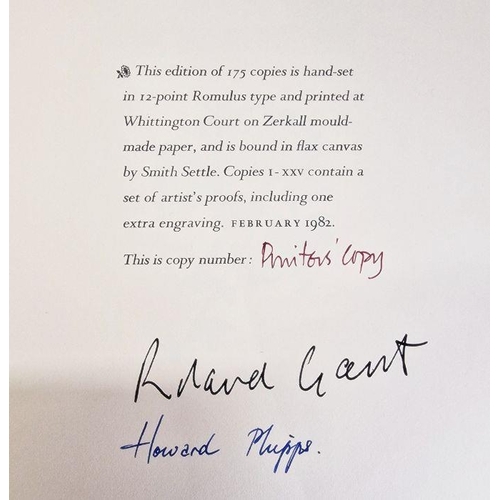 This edition of 175 copies is hand-set
in 12-point Romulus type and printed at
Whittington Court on Zerkall mould-
made paper, and is bound in flax canvas
by Smith Settle. Copies I-XXV contain a
set of artist's proofs, including one
extra engraving. FEBRUARY 1982.
This is copy number: Printers' Copy
Roland Gant
Howard Phipps.